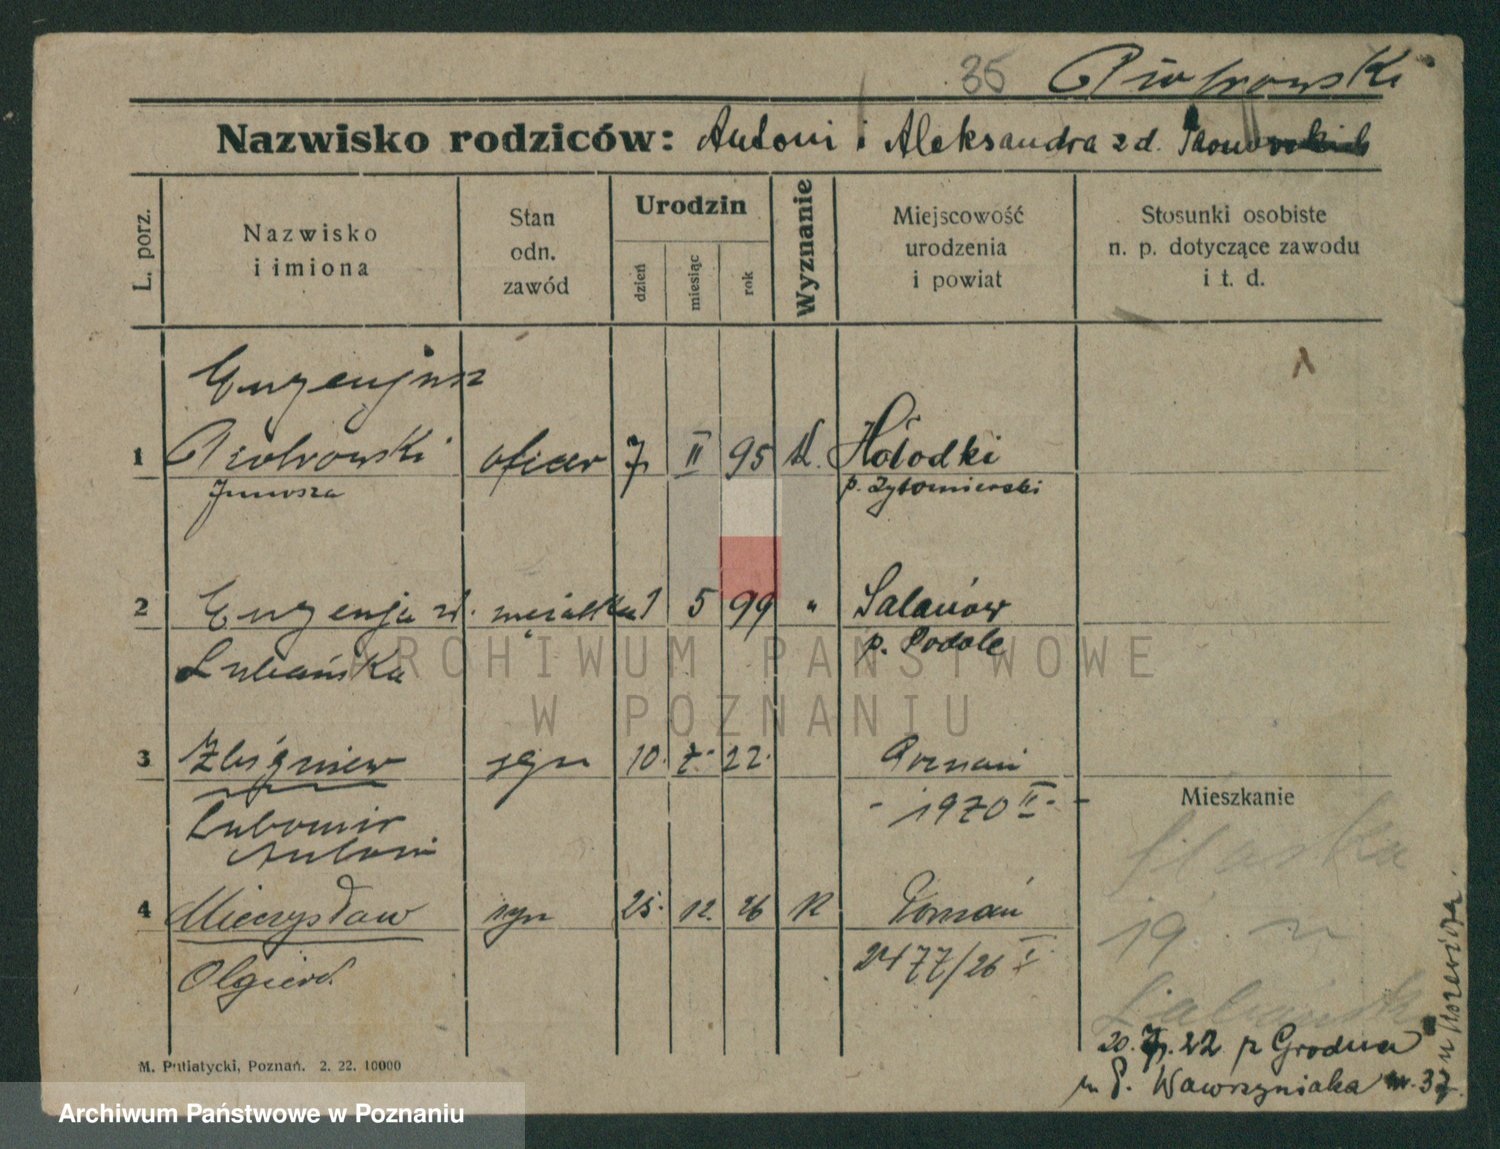 35 Piotrowski
Nazwisko rodziców: Antoni i Aleksandra z d.
L. porz.
Nazwisko
i imiona
Stan
odn.
zawód
Urodzin
dzień
miesiąc
rok
Wyznanie
Miejscowość
urodzenia
i powiat
Stosunki osobiste
n. p. dotyczące zawodu
i t. d.
Eugenjusz
1 Piotrowski oficer 7 II 95 Hołodki
Janusza p. Żytomierski
2 Eugenja zd. mężatka 1 5 99 " Salanów
Lubańska p. Podole
3 Zbigniew syn 10. 7. 22. Poznań
Lubomir - 1970 II -
Antoni
Mieszkanie
Śląska
4 Mieczysław syn 25. 12. 26 R Poznań
19
Olgierd 2477/26 I
Lubańsk
20. 22 p Grodna
u P. Wawrzyniaka nr. 37.
M. Putiatycki, Poznań. 2. 22. 10000
ARCHIWUM PAŃSTWOWE
W POZNANIU
Archiwum Państwowe w Poznaniu